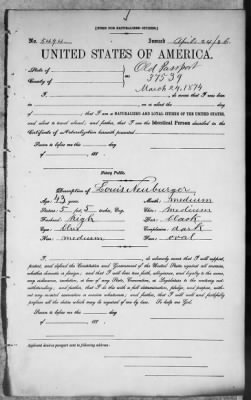 [FORM FOR NATURALIZED CITIZEN.]
No. 5494 Issued April 24/86
UNITED STATES OF AMERICA.
State of Old Passport
County of 37539
March 24, 1874
I, do swear that I was born
in on or about the
day of that I am a NATURALIZED AND LOYAL CITIZEN OF THE UNITED STATES,
and about to travel abroad; and further, that I am the Identical Person described in the
Certificate of Naturalization herewith presented
Sworn to before me this day
of 188
Notary Public.
Description of Louis Neuburger
Age: 43 years. Mouth: medium
Stature: 5 feet, 5 inches, Eng. Chin: medium
Forehead: high Hair: black
Eyes: blue Complexion: dark
Nose: medium Face: oval
I, do solemnly swear that I will support,
protect, and defend the Constitution and Government of the United States against all enemies,
whether domestic or foreign; and that I will bear true faith, allegiance, and loyalty to the same,
any ordinance, resolution, or law of any State, Convention, or Legislature to the contrary not-
withstanding; and further, that I do this with a full determination, pledge, and purpose, with-
out any mental reservation or evasion whatsoever; and further, that I will well and faithfully
perform all the duties which may be required of me by law. So help me God.
Sworn to before me this day
of 188
Applicant desires passport sent to following address: